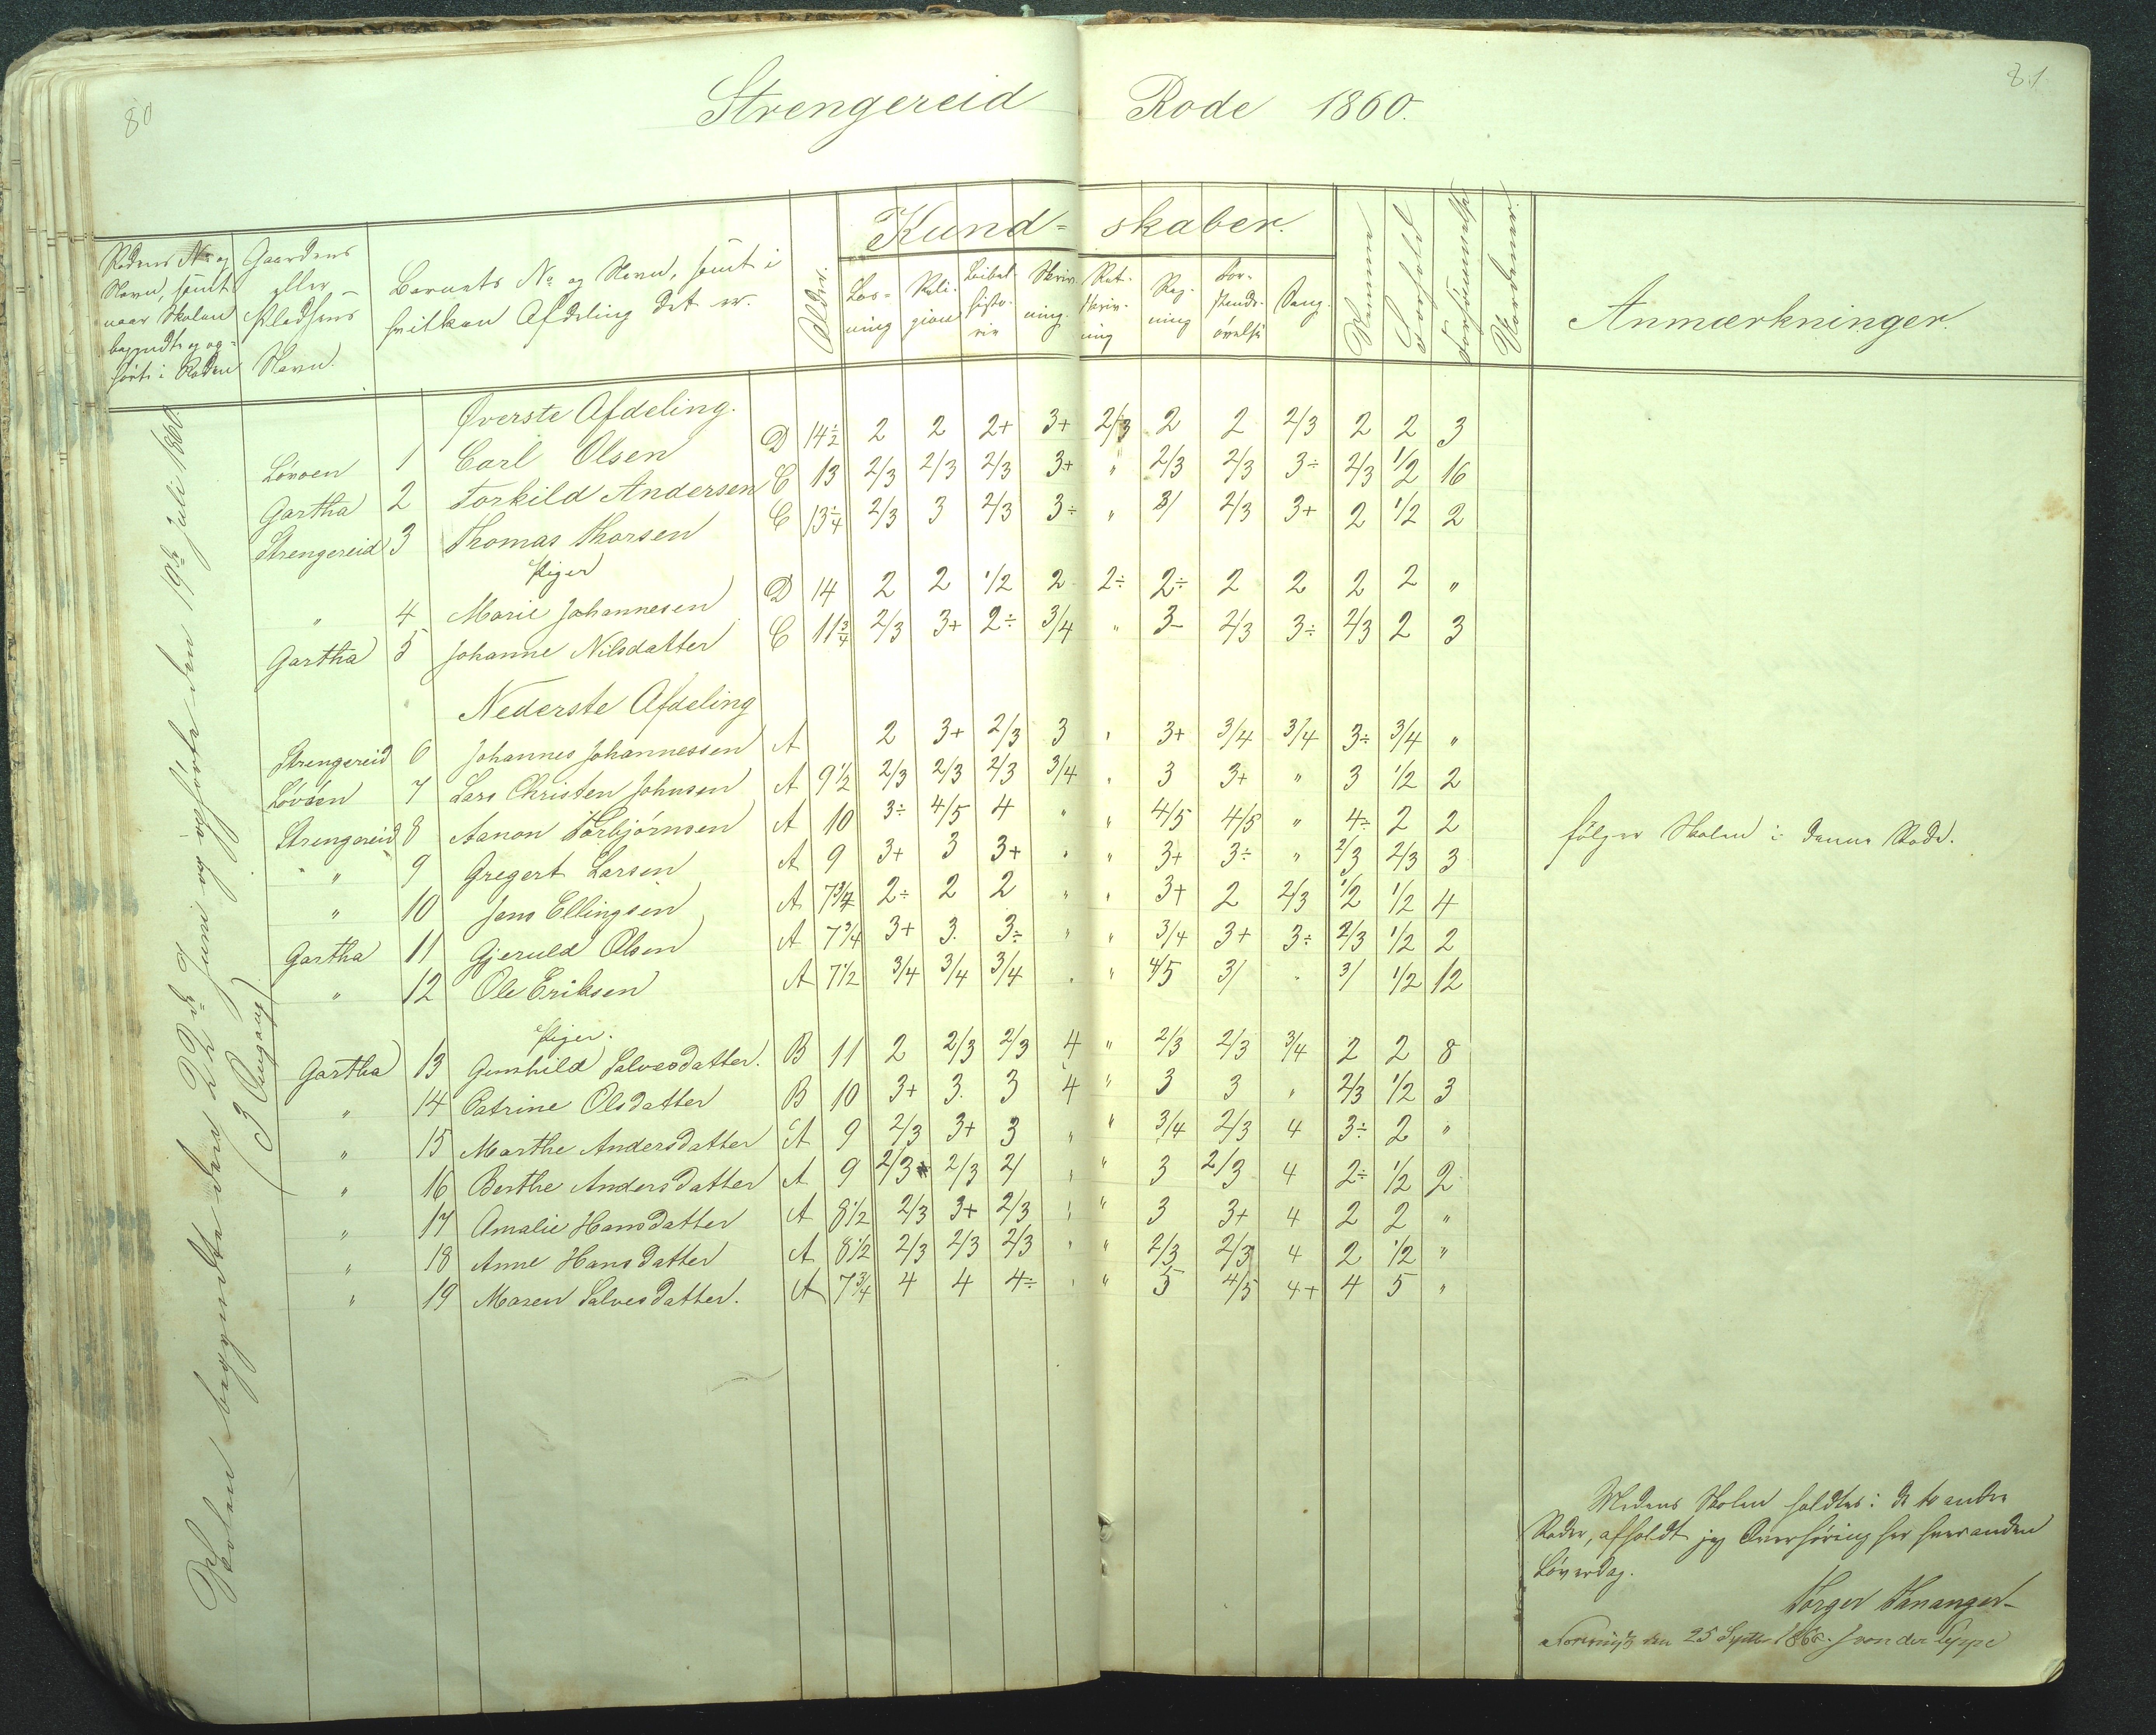 80
81
Strengereid Rode 1860.
Rodens No og Navn, samt naar Skolen begyndte og ophørte i Roden
Gaardens eller Pladsens Navn.
Barnets No og Navn, samt i hvilken Afdeling det er.
Alder.
Kund= skaber.
Læs=ning
Reli-gion
Bibel-histo-rie
Skriv-ning.
Ret-skriv-ning
Reg-ning
For-stands-øvelse
Sang.
Nemme
Forhold
Forsømmelse
Anmærkninger.
Skolen begyndte den 22de Juni og ophørte den 19de Juli 1860.
(3 Omgang)
Øverste Afdeling.
Løvoen 1 Carl Olsen D 14½ 2 2 2+ 3+ 2/3 2 2 2/3 2 2 3
Gartha 2 Torkild Andersen C 13 2/3 2/3 2/3 3+ " 2/3 2/3 3÷ 2/3 1/2 16
Strengereid 3 Thomas Thorsen C 13¼ 2/3 3 2/3 3÷ " 3/ 2/3 3+ 2 1/2 2
Piger
" 4 Marie Johannesen D 14 2 2 1/2 2 2÷ 2÷ 2 2 2 2 "
Gartha 5 Johanne Nilsdatter C 11¾ 2/3 3+ 2÷ 3/4 " 3- 2/3 3÷ 2/3 2 3
Nederste Afdeling
Strengereid 6 Johannes Johannessen A 2 3+ 2/3 3 " 3+ 3/4 3/4 3÷ 3/4 "
Løvoen 7 Lars Christen Johnsen A 9½ 2/3 2/3 2/3 3/4 " 3 3+ " 3 1/2 2
Strengereid 8 Aanon Torbjørnsen A 10 3÷ 4/5 4 " " 4/5 4/5 " 4÷ 2 2 følger Skolen i denne Rode.
" 9 Gregert Larsen A 9 3+ 3 3+ " " 3+ 3÷ " 2/3 2/3 3
" 10 Jens Ellingsen A 7¾ 2÷ 2 2 " " 3+ 2 2/3 1/2 1/2 4
Gartha 11 Gjeruld Olsen A 7¾ 3+ 3. 3÷ " " 3/4 3+ 3÷ 2/3 1/2 2
" 12 Ole Eriksen A 7½ 3/4 3/4 3/4 " " 4/5 3/ " 3/ 1/2 12
Piger.
Gartha 13 Gunhild Salvesdatter. B 11 2 2/3 2/3 4 " 2/3 2/3 3/4 2 2 8
" 14 Patrine Olsdatter B 10 3+ 3. 3 4 " 3 3 " 2/3 1/2 3
" 15 Marthe Andersdatter A 9 2/3 3+ 3 " " 3/4 2/3 4 3÷ 2 "
" 16 Berthe Andersdatter A 9 2/3 2/3 2/ " " 3 2/3 4 2÷ 1/2 2
" 17 Amalie Hansdatter A 8½ 2/3 3+ 2/3 " " 3 3+ 4 2 2 "
" 18 Anne Hansdatter A 8½ 2/3 2/3 2/3 " " 2/3 2/3 4 2 1/2 "
" 19 Maren Salvesdatter. A 7¾ 4 4 4÷ " " 5 4/5 4+ 4 5 "
Medens Skolen holdtes i de to andre
Roder, afholdt jeg Overhøring her hveranden
Løverdag.
Tørger Vananger
den 25 Septbr 1860. J von der Lippe